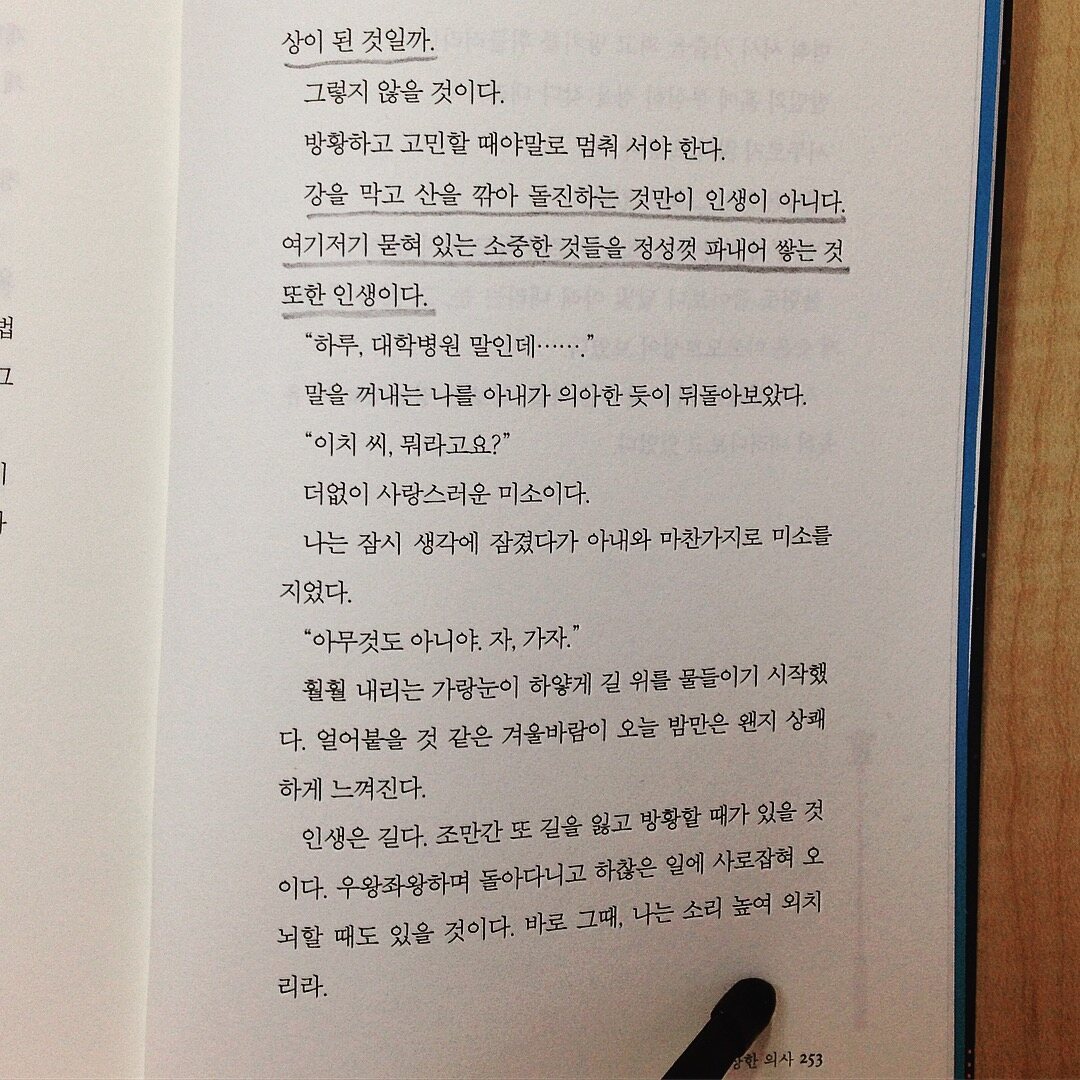 상이 된 것일까.
그렇지 않을 것이다.
방황하고 고민할 때야말로 멈춰 서야 한다.
강을 막고 산을 깎아 돌진하는 것만이 인생이 아니다.
여기저기 묻혀 있는 소중한 것들을 정성껏 파내어 쌓는 것
또한 인생이다.
“하루, 대학병원 말인데…….”
말을 꺼내는 나를 아내가 의아한 듯이 뒤돌아보았다.
“이치 씨, 뭐라고요?”
더없이 사랑스러운 미소이다.
나는 잠시 생각에 잠겼다가 아내와 마찬가지로 미소를
지었다.
“아무것도 아니야. 자, 가자.”
훨훨 내리는 가랑눈이 하얗게 길 위를 물들이기 시작했
다. 얼어붙을 것 같은 겨울바람이 오늘 밤만은 왠지 상쾌
하게 느껴진다.
인생은 길다. 조만간 또 길을 잃고 방황할 때가 있을 것
이다. 우왕좌왕하며 돌아다니고 하찮은 일에 사로잡혀 오
뇌할 때도 있을 것이다. 바로 그때, 나는 소리 높여 외치
리라.
의사 253